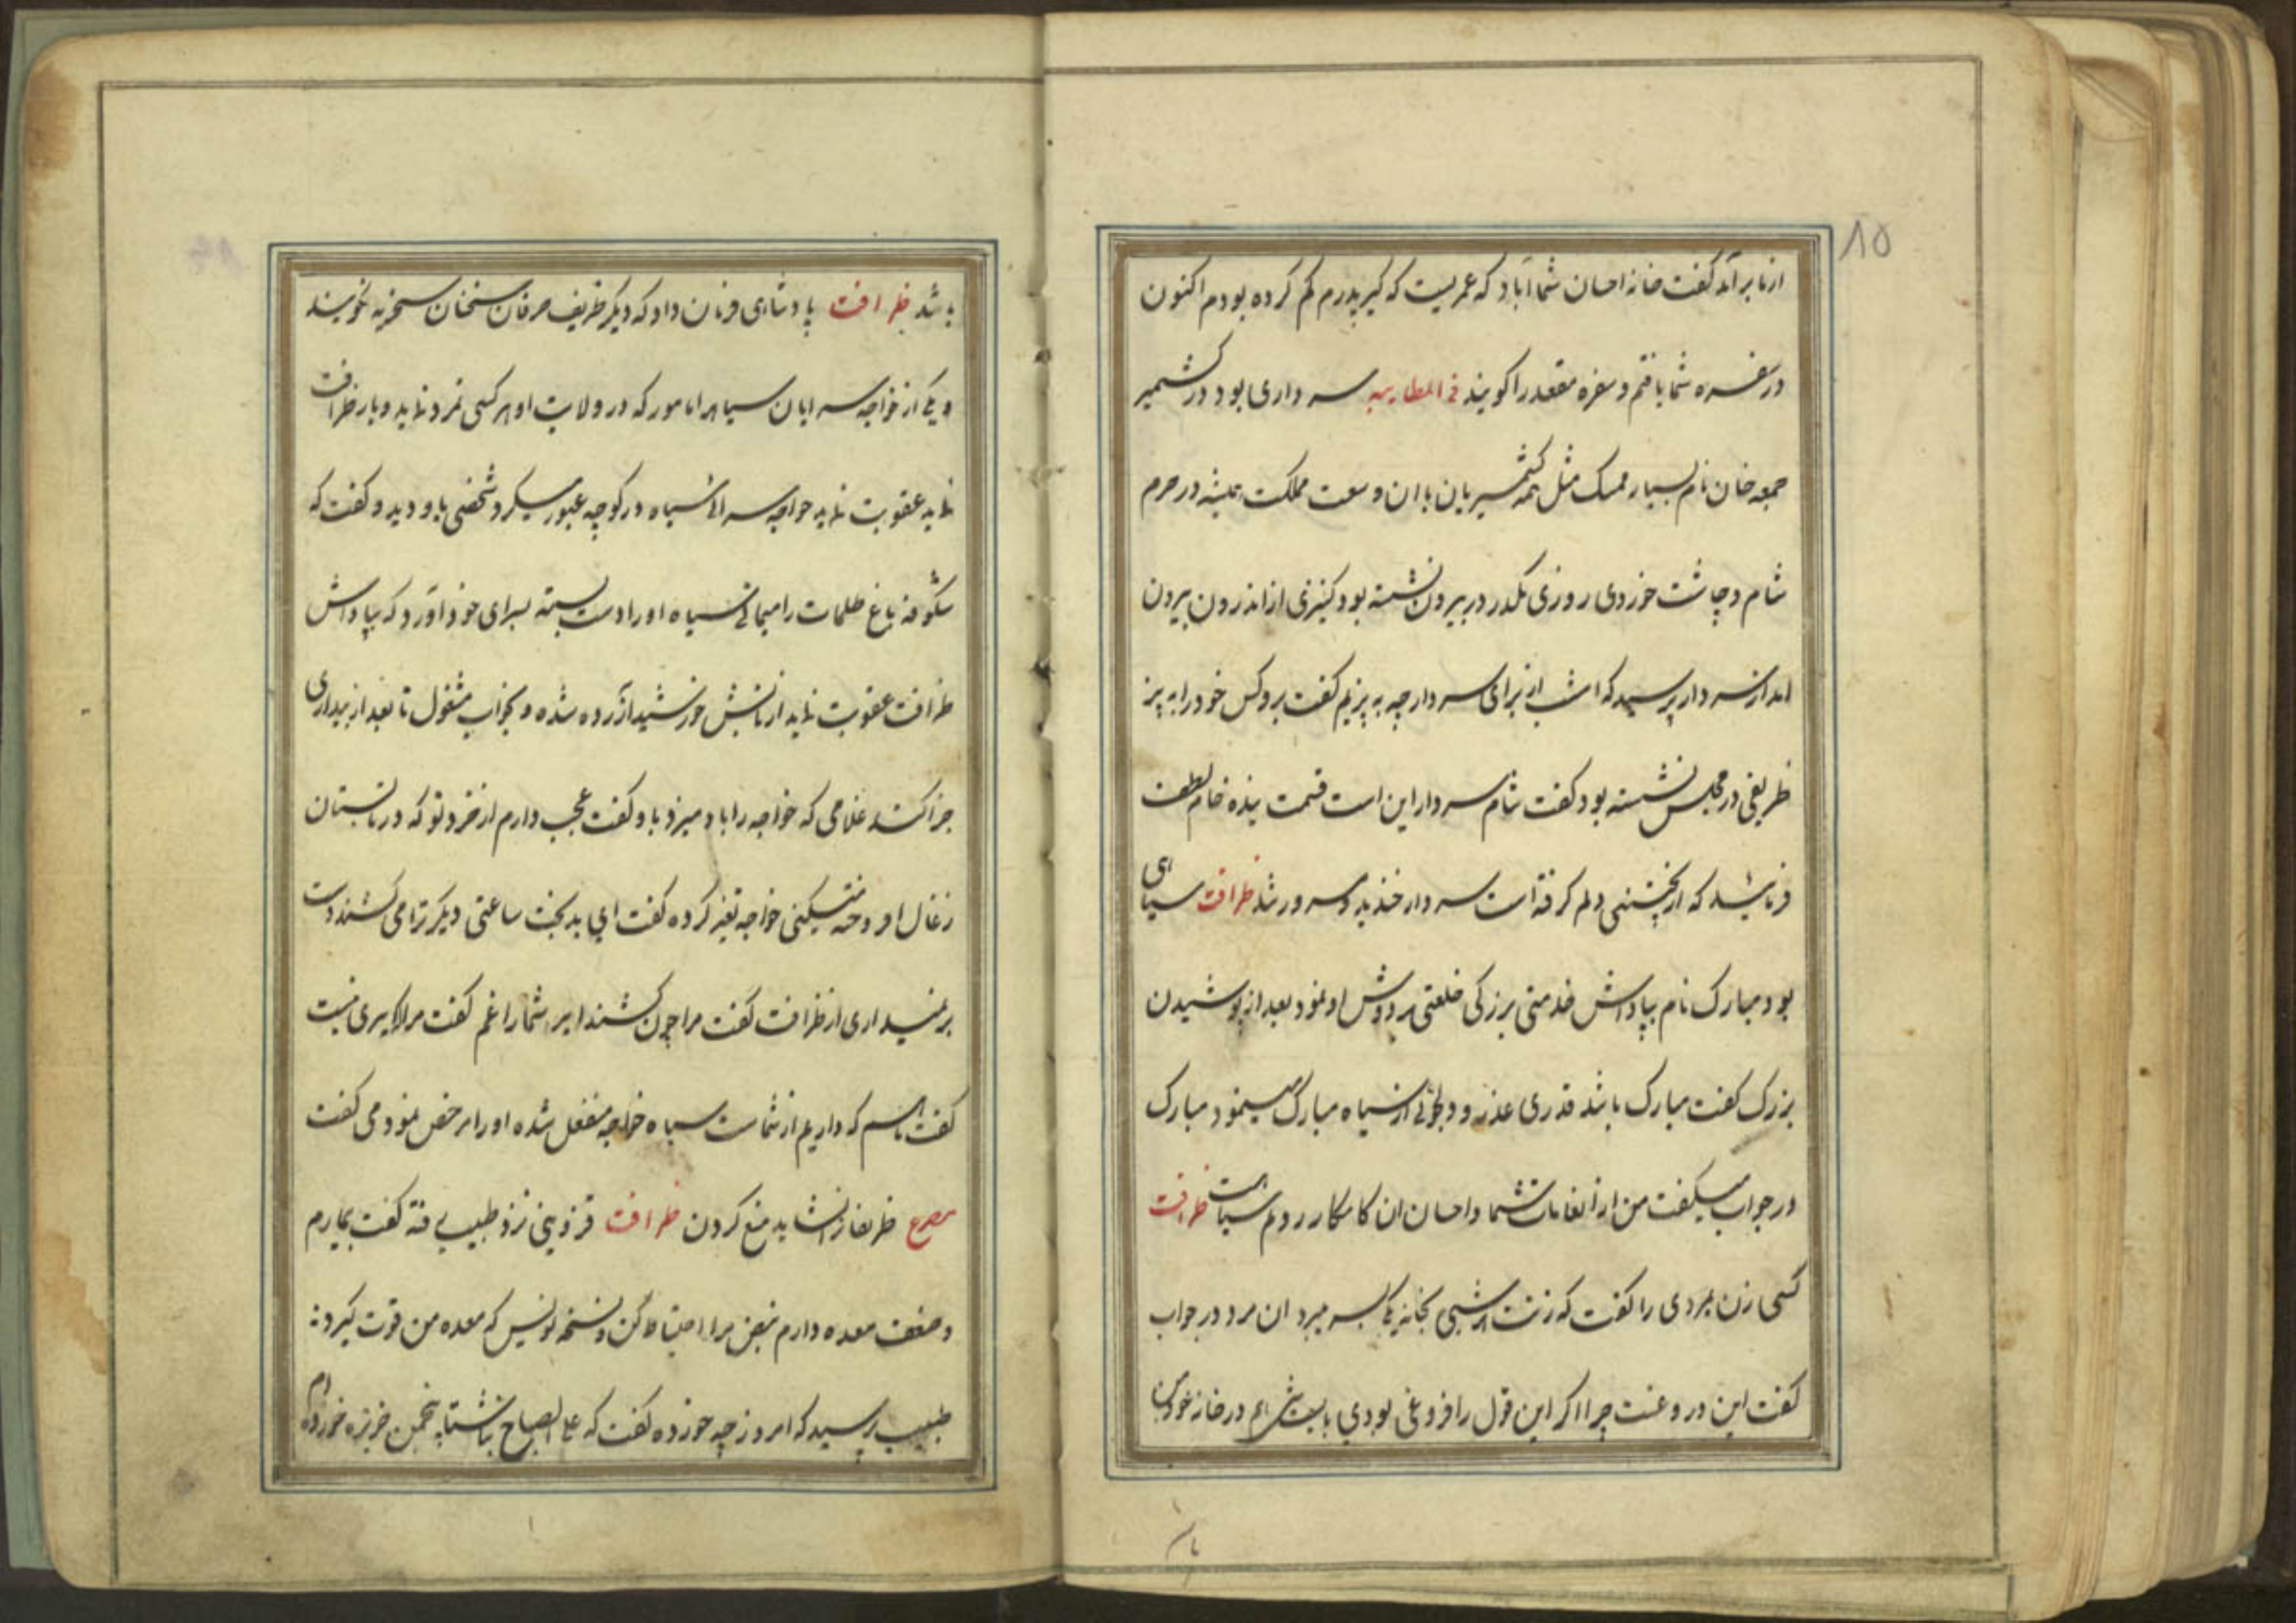 ۸۵
ازنا برآمد گفت خانه احسان شما آباد که عمریست که کیر پدرم کم کرده بودم اکنون
در سفره شما یافتم و سفره مقعد را کویند فی المطایبه سرداری بود در کشمیر
جمعه خان نام بسیار ممسک مثل همه کشمیریان باان وسعت مملکت همیشه در حرم
شام و چاشت خوردی روزی مکدر در بیرون نشسته بود کنیزی از اندرون بیرون
امد از سردار پرسید که امشب از برای سردار چه به پزیم گفت برو کس خود را به پز
ظریفی در مجلس نشسته بود کفت شام سردار این است قسمت بنده خام لطف
فرمائید که از پختنی دلم کرفته است سردار خندید و مسرور شد ظرافت سیاهی
بود مبارک نام بپاداش خدمتی بزرکی خلعتی بردوش او نمود بعد از پوشیدن
بزرک کفت مبارک باشد قدری عذر و دلجوئی از سیاه مبارک مینمود مبارک
در جواب میکفت من از انعامات شما و احسان ان کامکار رویم سیاهست ظرافت
کسی زن بمردی را کفت که زنت هر شبی بخانه یکی بسر میبرد ان مرد در جواب
کفت این دروغست چرا اکر این قول را فروغی بودی بایست شبی هم در خانه خودمن
با
باشد ظرافت پادشاهی فرمان داد که دیکر ظریف حرفان سخنان سخریه نکویند
و یکی از خواجه سرایان سیاه را مامور که در ولایت او هر کسی تمرد نماید و یا ظرافت
نماید عقوبت نماید خواجه سرای سیاه در کوچه عبور میکرد شخصی باو دید و کفت که
شکوفه باغ ظلمات را میمانی سیاه او را دست بسته بسرای خود آورد که بپاداش
ظرافت عقوبت نماید از تابش خورشید آزرده شده و بخواب مشغول تا بعد از بیداری
جزا کشد غلامی که خواجه را باد میزد باو کفت عجب دارم از خرد تو که در تابستان
زغال افروخته میکنی خواجه تغیر کرده کفت ای بدبخت ساعتی دیکر ترا می کشند دست
بر نمیداری از ظرافت کفت مرا چون کشند ایر شما را غم کفت مرا ایری نیست
کفت ماهم که داریم از شماست سیاه خواجه منفعل شده او را مرخص نمود می کفت
مصرع ظریفان را نشاید منع کردن ظرافت قزوینی نزد طبیب رفته کفت بیمارم
و ضعف معده دارم نبض مرا احتیاط کن و نسخه نویس که معده من قوت کیرد
طبیب پرسید که امروز چه خورده کفت که علی الصباح ناشتا پنجمن خربزه خورده ام